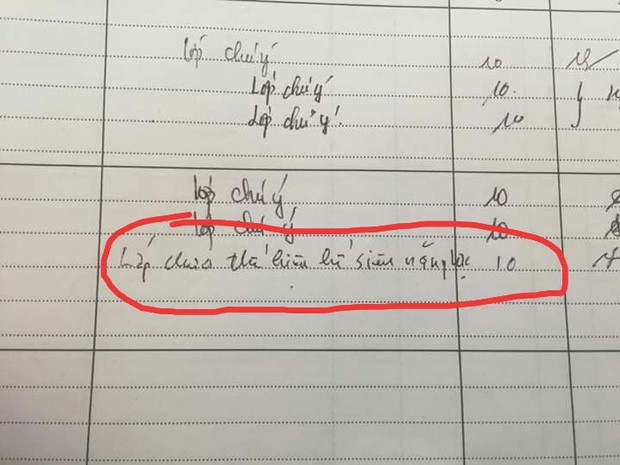 Lớp chú ý 10
Lớp chú ý 10
Lớp chú ý. 10
Lớp chú ý 10
Lớp chú ý 10
Lớp chưa thể hiện hế siêu năng lực 10